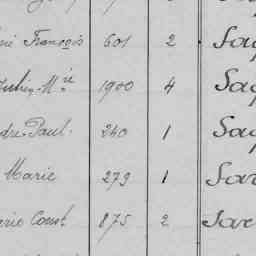 François 601 2 Sa
Julien Mie 1900 4 Sa
dre Paul. 240 1 Sa
Marie 279 1 Sar
rie Const. 875 2 Sar